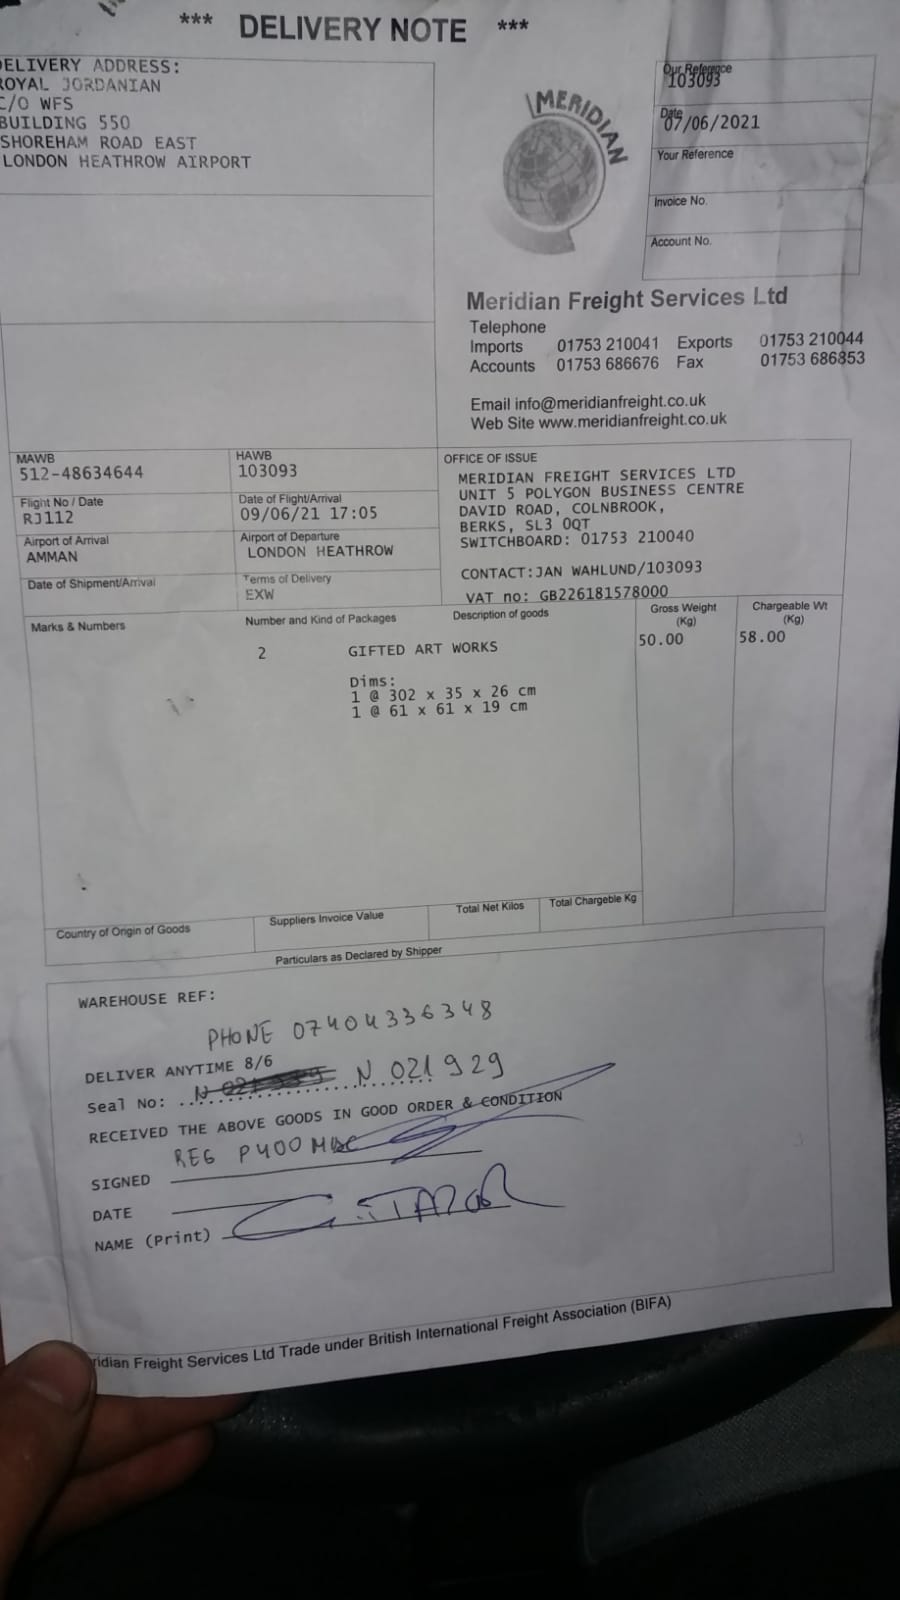 *** DELIVERY NOTE ***
DELIVERY ADDRESS:
ROYAL JORDANIAN
C/O WFS
BUILDING 550
SHOREHAM ROAD EAST
LONDON HEATHROW AIRPORT
MERIDIAN
Our Reference
103093
Date
07/06/2021
Your Reference
Invoice No.
Account No.
Meridian Freight Services Ltd
Telephone
Imports 01753 210041 Exports 01753 210044
Accounts 01753 686676 Fax 01753 686853
Email info@meridianfreight.co.uk
Web Site www.meridianfreight.co.uk
MAWB
512-48634644
HAWB
103093
Flight No / Date
RJ112
Date of Flight/Arrival
09/06/21 17:05
Airport of Arrival
AMMAN
Airport of Departure
LONDON HEATHROW
Date of Shipment/Arrival
Terms of Delivery
EXW
OFFICE OF ISSUE
MERIDIAN FREIGHT SERVICES LTD
UNIT 5 POLYGON BUSINESS CENTRE
DAVID ROAD, COLNBROOK,
BERKS, SL3 0QT
SWITCHBOARD: 01753 210040
CONTACT:JAN WAHLUND/103093
VAT no: GB226181578000
Marks & Numbers
Number and Kind of Packages
Description of goods
Gross Weight
(Kg)
Chargeable Wt
(Kg)
2 GIFTED ART WORKS 50.00 58.00
Dims:
1 @ 302 x 35 x 26 cm
1 @ 61 x 61 x 19 cm
Country of Origin of Goods
Suppliers Invoice Value
Total Net Kilos
Total Chargeble Kg
Particulars as Declared by Shipper
WAREHOUSE REF:
PHONE 07404336348
DELIVER ANYTIME 8/6
Seal No: N 021929
RECEIVED THE ABOVE GOODS IN GOOD ORDER & CONDITION
REG P400
SIGNED
DATE
NAME (Print)
ridian Freight Services Ltd Trade under British International Freight Association (BIFA)